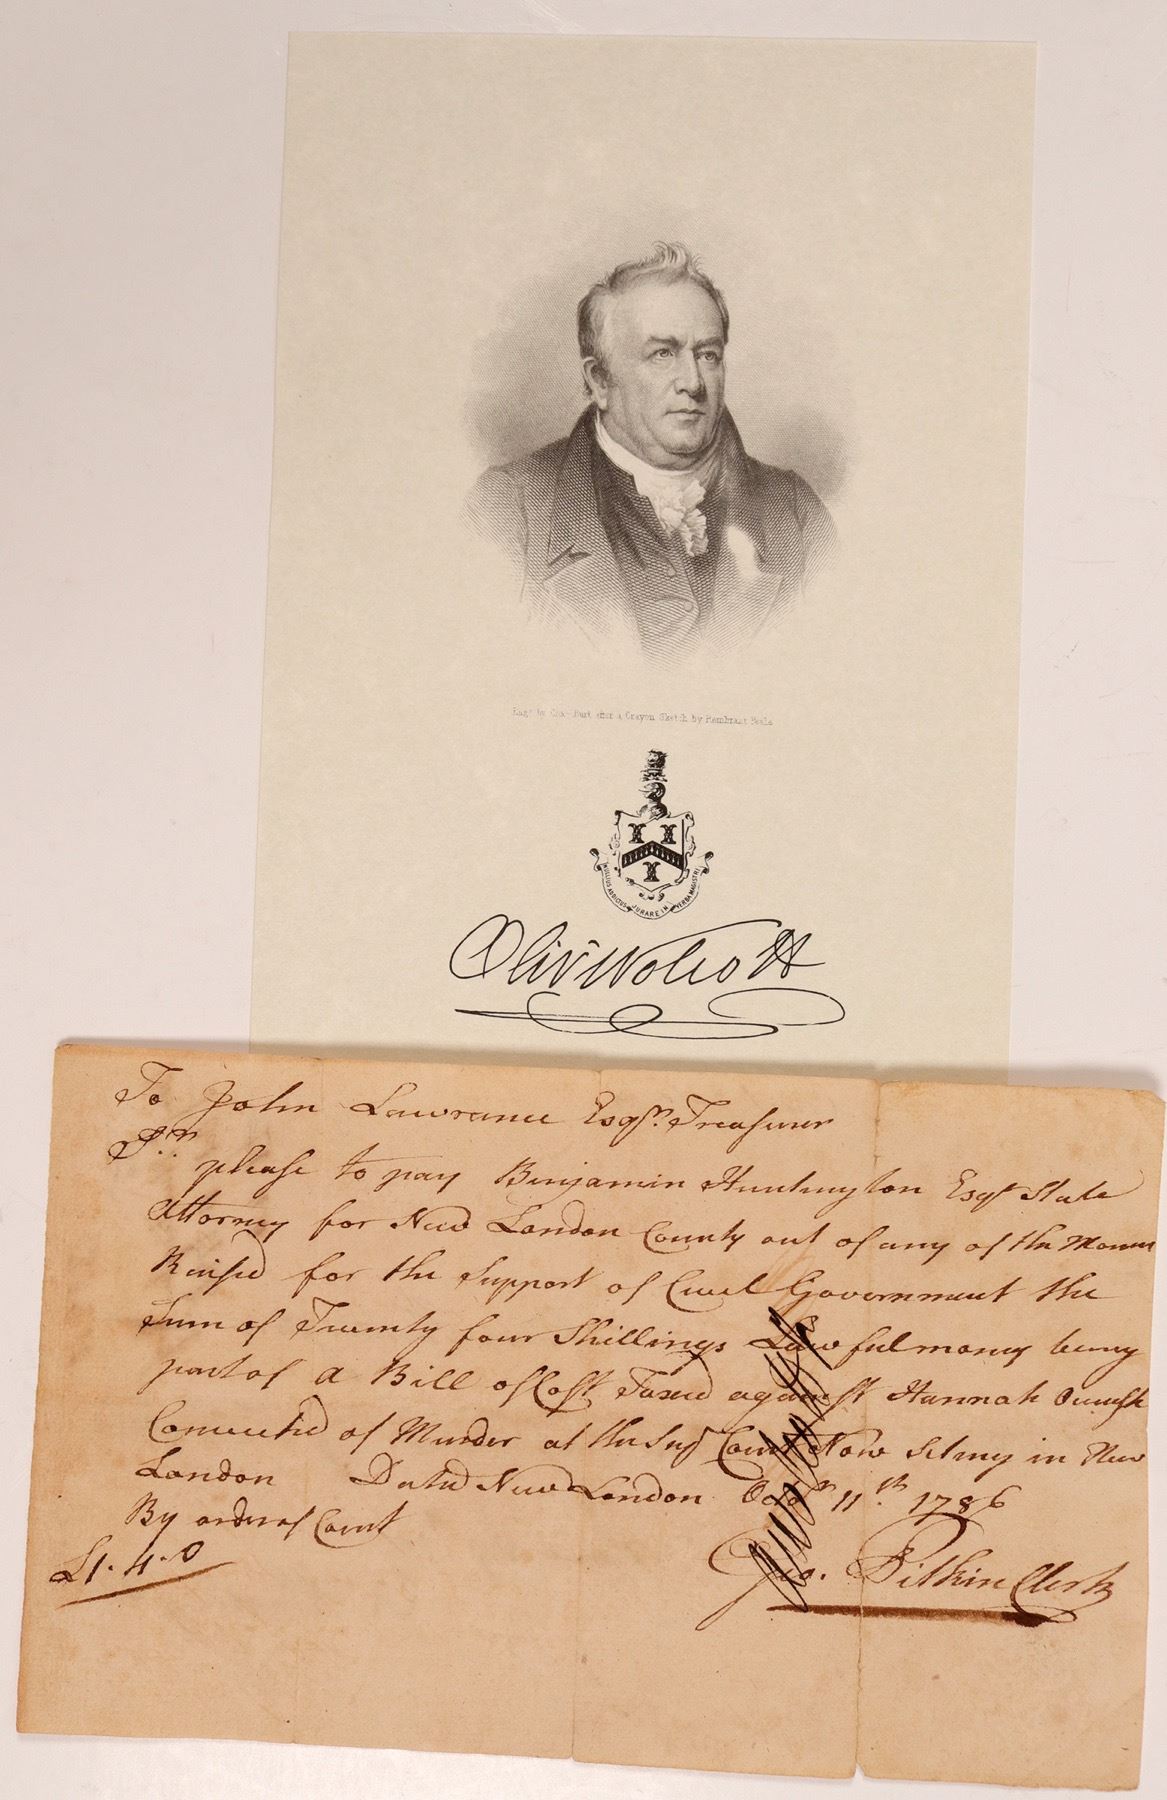 Eng.d by Chas. Burt after a Crayon Sketch by Rembrant Peale
NULLIUS ADDICTUS JURARE IN VERBA MAGISTRI
Oliv Wolcott
To John Lawrance Esqr. Treasurer
Sr..
please to pay Benjamin Huntington Esqr State
Attorney for New London County out of any of the Monies
Raised for the Support of Civel Government the
Sum of Twenty four Shillings Lawful money being
part of a Bill of Cost Taxed against Hannah Ocuish
Convicted of Murder at the Supr Court Now Siting in New
London Dated New London Octor 11th 1786
By order of Court
£1-4-0
Geo. Pitkin Clerk